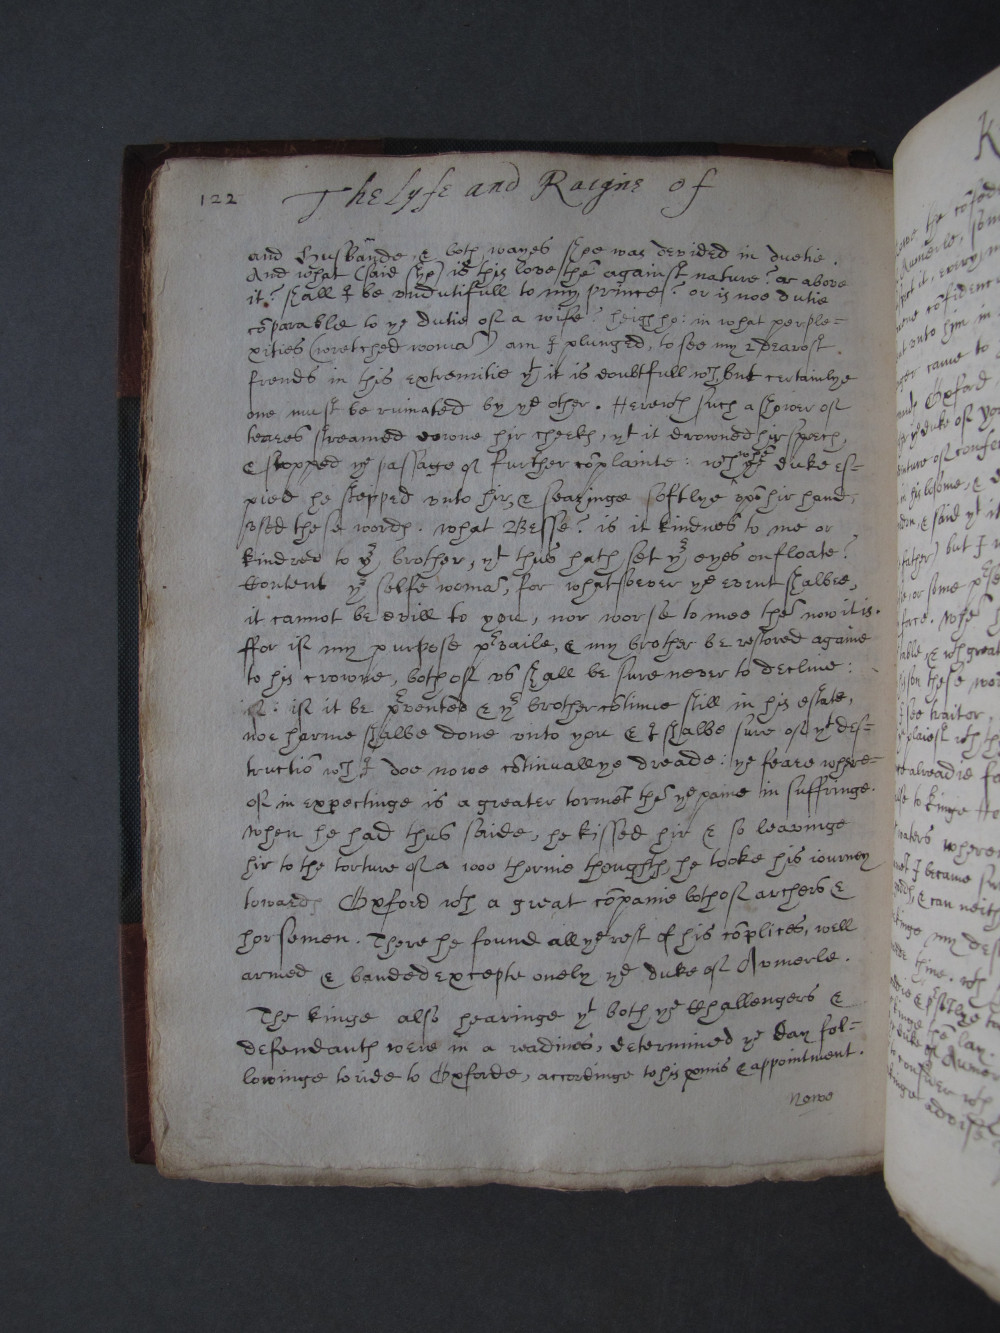 122 The lyfe and Raigne of
and husbande, & both wayes shee was devided in dutie.
And what (said shee) is this love thē against nature? or above
it? shall I be undutifull to my prince? or is noe dutie
cōparable to ye dutie of a wife? heigh ho: in what perple=
xities (wretched womā) am I plunged, to see my 2 dearest
frends in this extremitie yt it is doubtfull wch, but certainlye
one must be ruinated by ye other. Herewth such a shower of
teares streamed downe hir cheeks, yt it drowned hir spech,
& stopped ye passage of further cōplainte: wch whē ye duke es=
pied he stepped unto hir, & seazinge softlye upō hir hand,
used these words. What Besse? is it kindnes to me or
kindred to yr brother, yt thus hath set yr eyes on floate?
Content yr selfe womā, for whatsoever ye event shalbee,
it cannot be evill to you, nor worse to mee thē now it is.
ffor if my purpose prvaile, & my brother be restored againe
to his crowne, both of us shall be sure never to decline:
if: if it be prvented & yr brother cōtinue still in his estate,
noe harme shalbe done unto you & I shalbe sure of yt des=
tructiō wch I doe nowe cōtinuallye dreade: ye feare where=
of in expectinge is a greater tormēt thē ye paine in suffringe.
When he had thus saide, he kissed hir & so leavinge
hir to the torture of a 1000 thornie thoughts, he tooke his iourney
towards Oxford wth a great cōpanie both of archers &
horsemen. There he found all ye rest of his cōplices, well
armed & banded excepte onely ye duke of Aumerle.
The kinge also hearinge yt both ye Challengers &
defendants were in a readines, determined ye day fol=
lowinge to ride to Oxforde, accordinge to his pmis & appointment.
Nowe